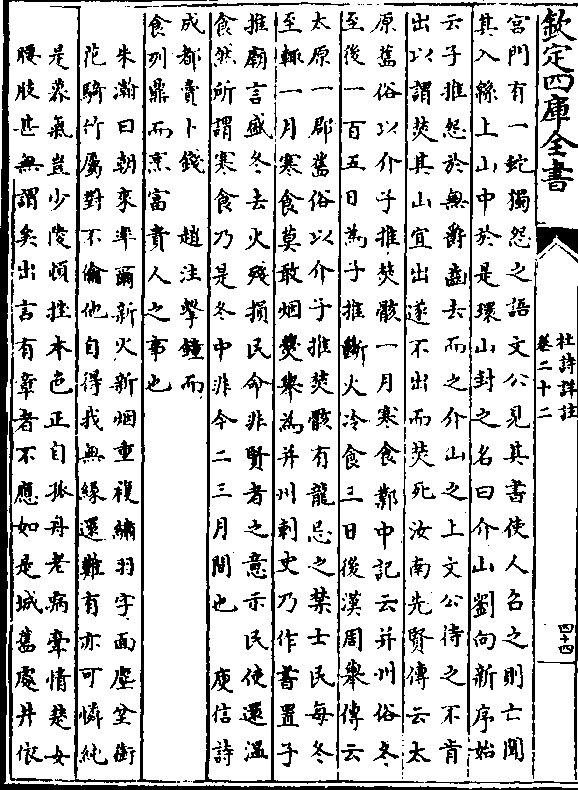 欽定四庫全書
杜詩詳註
卷二十二
四十四
宮門有一蛇獨怨之語文公見其書使人召之則亡聞
其入綿上山中於是環山封之名曰介山劉向新序始
云子推怨於無爵齒去而之介山之上文公待之不肯
出以謂焚其山宜出遂不出而焚死汝南先賢傳云太
原舊俗以介子推焚骸一月寒食鄴中記云并州俗冬
至後一百五日為子推斷火冷食三日後漢周舉傳云
太原一郡舊俗以介子推焚骸有龍忌之禁士民每冬
至輒一月寒食莫敢烟爨舉為并州刺史乃作書置子
推廟言盛冬去火殘損民命非賢者之意示民使還溫
食然所謂寒食乃是冬中非今二三月間也 庾信詩
成都賣卜錢 趙注擊鐘而
食列鼎而烹富貴人之事也
朱瀚曰朝來率爾新火新烟重複繡羽字面塵坌銜
花騎竹屬對不倫他自得我無緣還難有亦可憐純
是衰氣豈少陵頓挫本色正自孤舟老病牽情楚女
腰肢甚無謂矣出言有章者不應如是城舊處井依